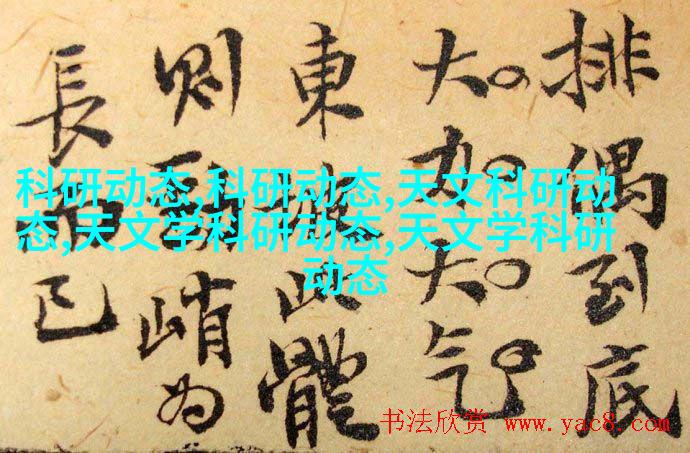 排偶到底
大力大气
東此體
則峭为
長已
科研动态,科研动态,天文科研动
态,天文学科研动态,天文学科研
动态
书法欣赏 www.yac8.com